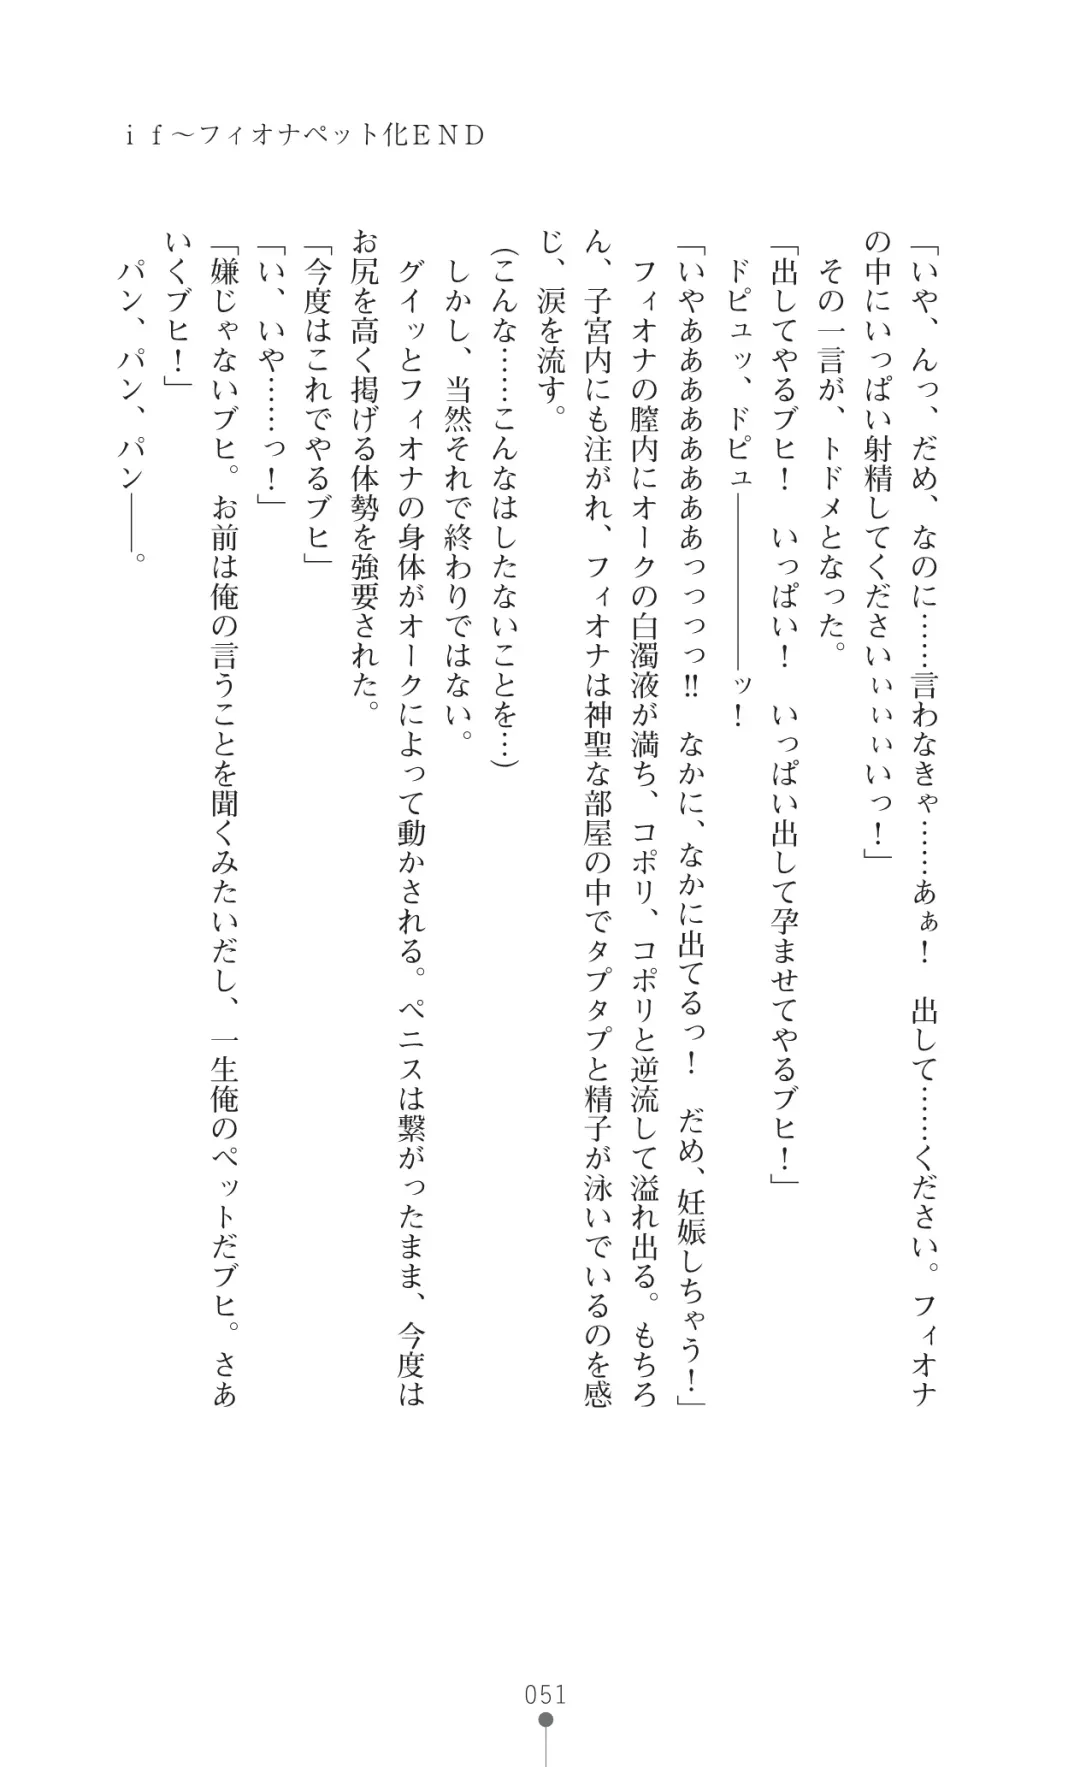 ｉｆ～フィオナペット化ＥＮＤ
「いや、んっ、だめ、なのに……言わなきゃ……あぁ！　出して……ください。フィオナ
の中にいっぱい射精してくださいぃぃぃいっ！」
　その一言が、トドメとなった。
「出してやるブヒ！　いっぱい！　いっぱい出して孕ませてやるブヒ！」
　ドピュッ、ドピュ――――――ッ！
「いやあああああああっっっっ!!　なかに、なかに出てるっ！　だめ、妊娠しちゃう！」
　フィオナの膣内にオークの白濁液が満ち、コポリ、コポリと逆流して溢れ出る。もちろ
ん、子宮内にも注がれ、フィオナは神聖な部屋の中でタプタプと精子が泳いでいるのを感
じ、涙を流す。
（こんな……こんなはしたないことを…）
　しかし、当然それで終わりではない。
　グイッとフィオナの身体がオークによって動かされる。ペニスは繋がったまま、今度は
お尻を高く掲げる体勢を強要された。
「今度はこれでやるブヒ」
「い、いや……っ！」
「嫌じゃないブヒ。お前は俺の言うことを聞くみたいだし、一生俺のペットだブヒ。さあ
いくブヒ！」
　パン、パン、パン――。
051